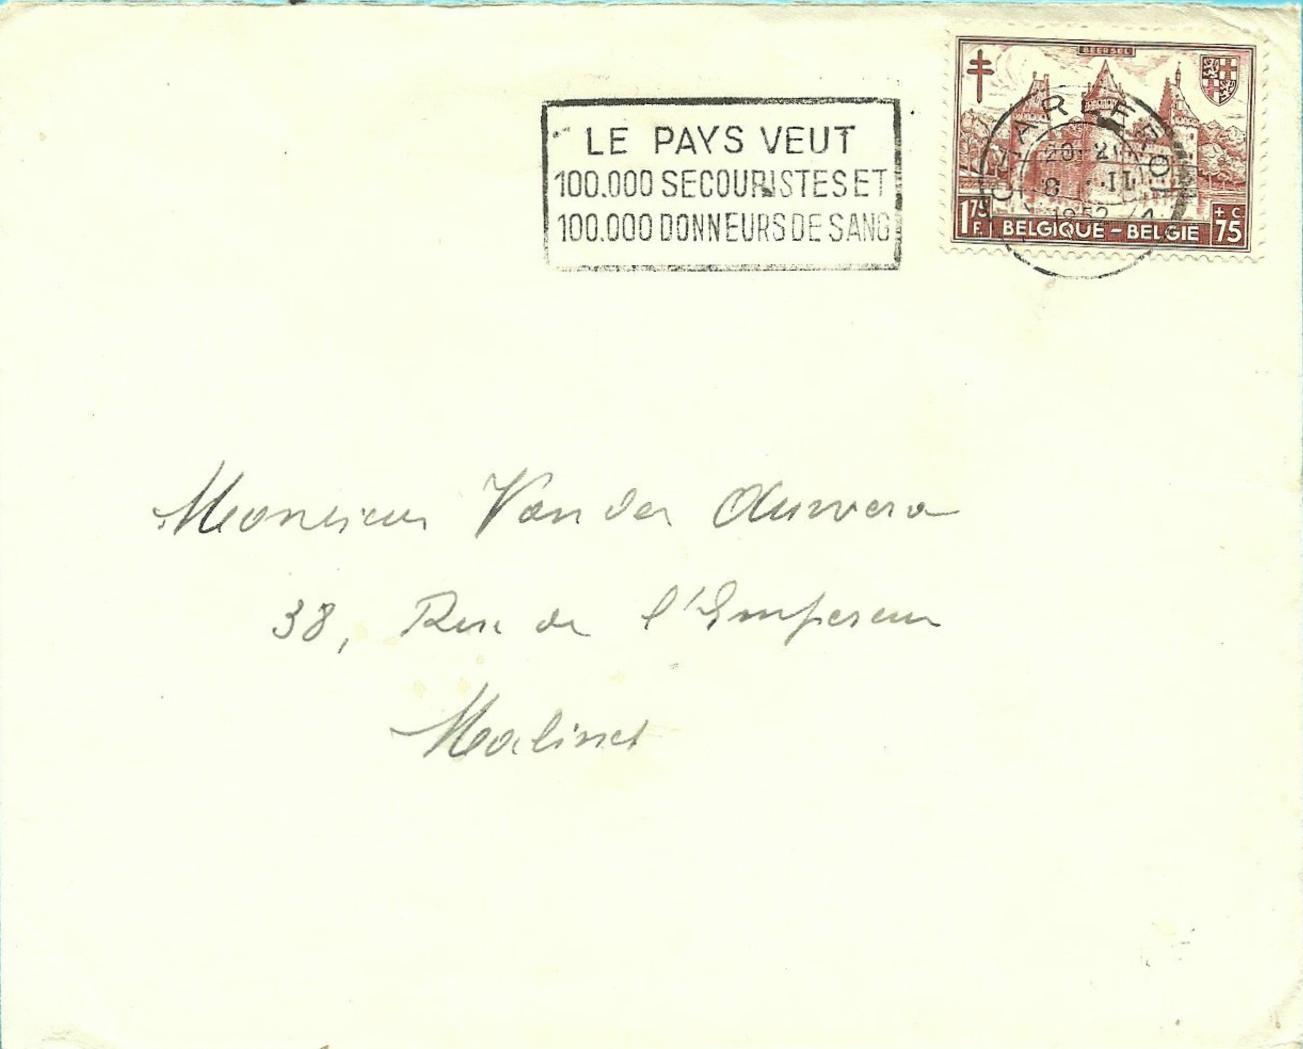 BEERSEL
LE PAYS VEUT
100.000 SECOURISTES ET
100.000 DONNEURS DE SANG
CHARLEROI
8 II
1952
1F.75 BELGIQUE - BELGIE +C 75
Monsieur Van der Auwera
38, Rue de l'Empereur
Malines